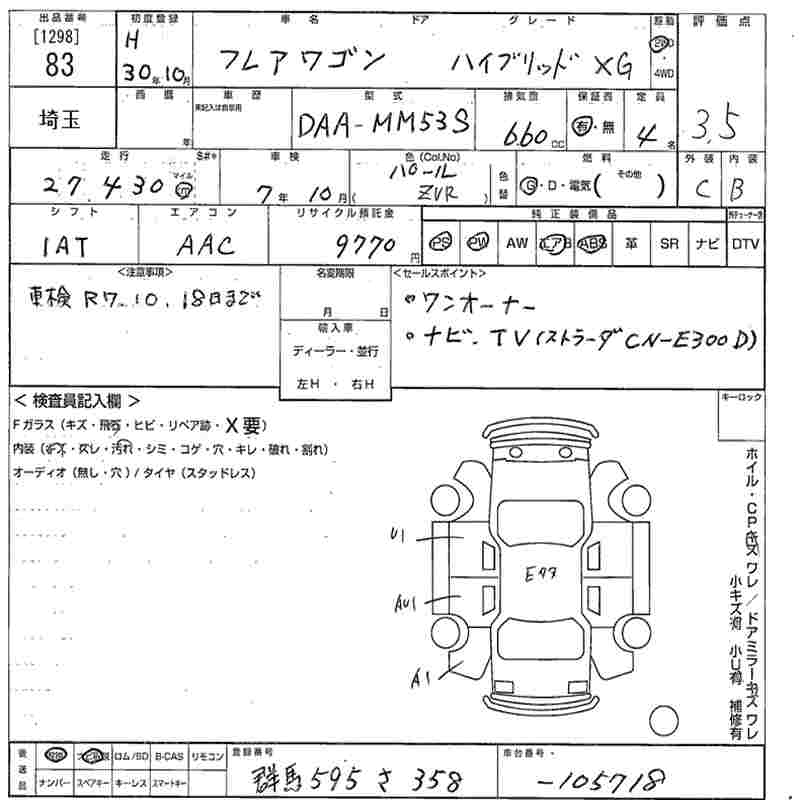 出品番号 初度登録 車名 ドア グレード 駆動 評価点
[1298] 83 H 30年10月 フレアワゴン ハイブリッド XG 2WD 4WD 3.5
埼玉 西暦 年 車歴 未記入は自家用 型式 DAA-MM53S 排気量 660cc 保証書 有・無 定員 4名
走行 27,430 マイル S#* 車検 7年10月 色(Col.No) パール ZVR 色替 燃料 G・D・電気( その他 ) 外装 C 内装 B
シフト IAT エアコン AAC リサイクル預託金 9770円 純正装備品 PS PW AW エアB ABS 革 SR ナビ DTV
<注意事項> 名変期限 <セールスポイント>
車検 R7.10.18日まで 月 日 ・ワンオーナー
輸入車 ・ナビ.TV(ストラーダCN-E300D)
ディーラー・並行
左H ・ 右H
< 検査員記入欄 > キーロック
Fガラス(キズ・飛石・ヒビ・リペア跡・X要)
内装(キズ・スレ・汚れ・シミ・コゲ・穴・キレ・破れ・割れ)
オーディオ(無し・穴)/タイヤ(スタッドレス)
U1
E77
AU1
A1
ホイル・CPキズ ワレ/ドアミラーキズ ワレ
小キズ有 小U有 補修有
後送品 ロム/SD B-CAS リモコン 登録番号 車台番号
ナンバー スペアキー キーレス スマートキー 群馬595 さ 358 -105718